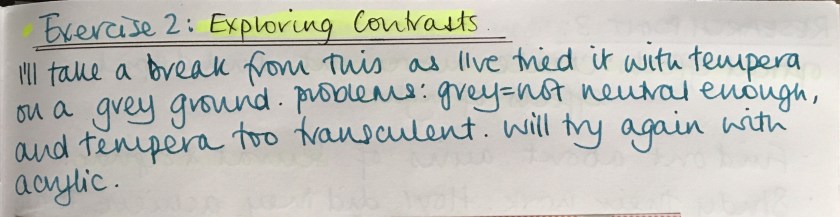 Exercise 2: Exploring Contrasts.
I'll take a break from this as I've tried it with tempera
on a grey ground. problems: grey=not neutral enough,
and tempera too transculent. will try again with
acrylic.